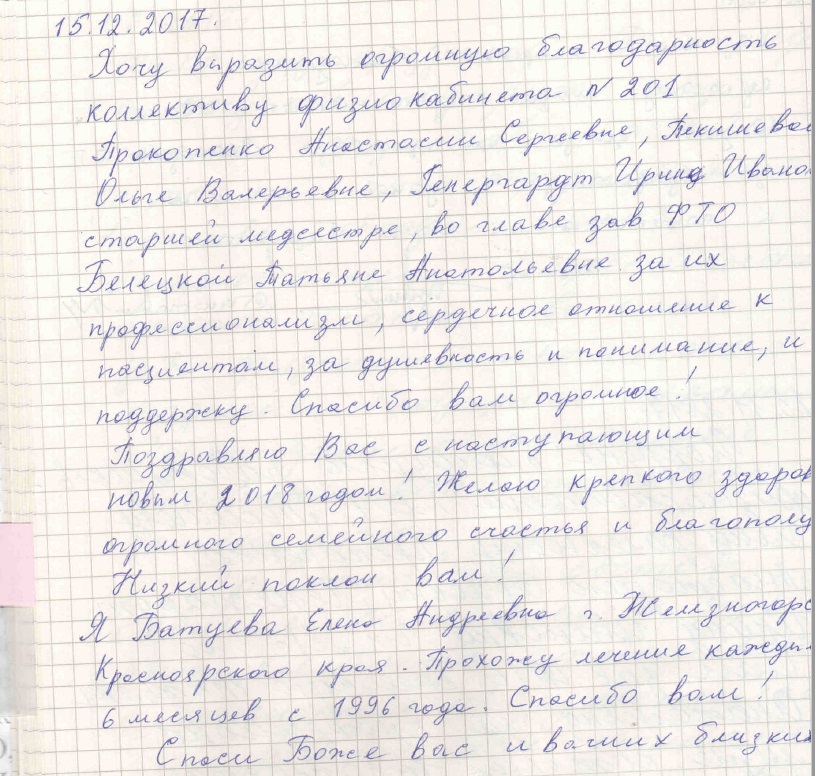 15.12.2017.
Хочу выразить огромную благодарность
коллективу физиокабинета N 201
Прокопенко Анастасии Сергеевне, Пекишевой
Ольге Валерьевне, Гепергардт Ирине Ивано
старшей медсестре, во главе зав ФТО
Белецкой Татьяне Анатольевне за их
профессионализм, сердечное отношение к
пациентам, за душевность и понимание, и
поддержку. Спасибо вам огромное!
Поздравляю Вас с наступающим
новым 2018 годом! Желаю крепкого здоров
огромного семейного счастья и благополу
Низкий поклон вам!
Я Батуева Елена Андреевна г. Железногорс
Красноярского края. Прохожу лечение кажды
6 месяцев с 1996 года. Спасибо вам!
Спаси Боже вас и ваших близких